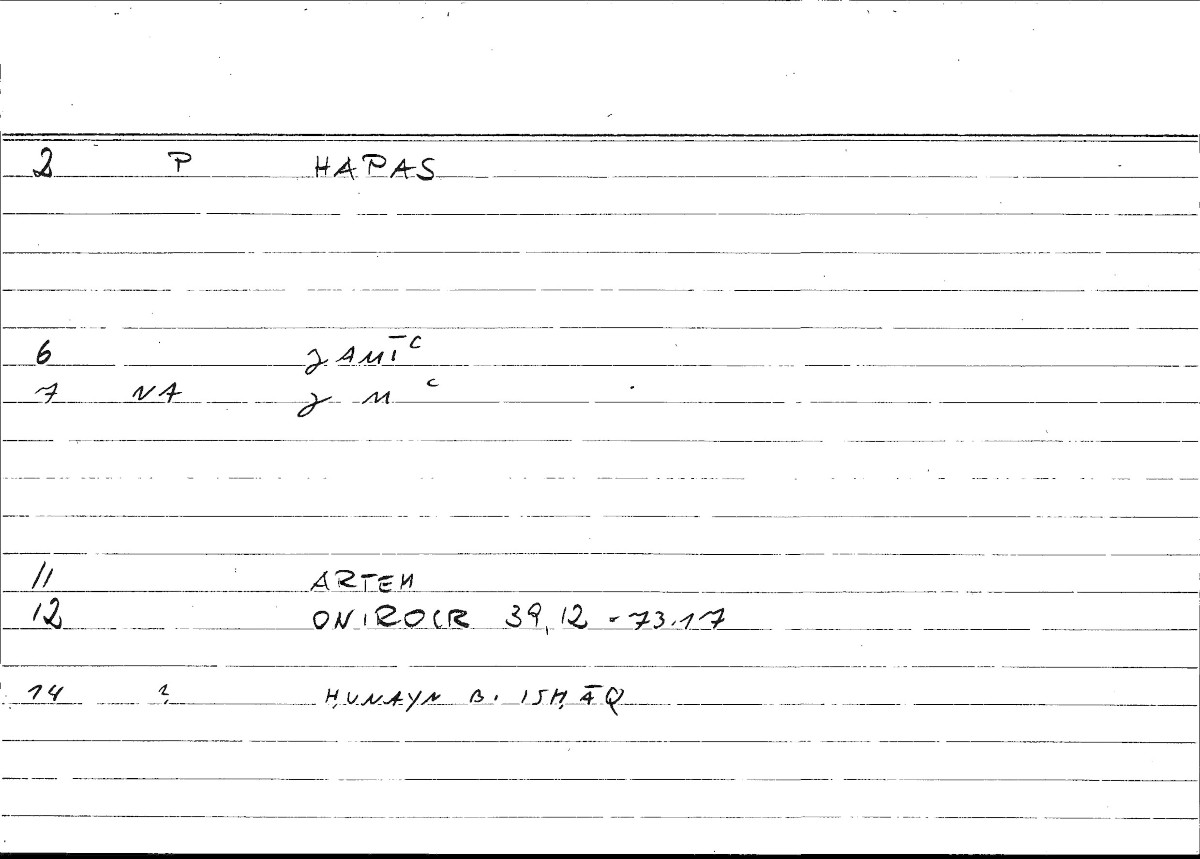 2 P HAPAS
6 JAMĪᶜ
7 NA J M ᶜ
11 ARTEM
12 ONIROCR 39,12 - 73.17
14 ? ḤUNAYN B. ISḤĀQ